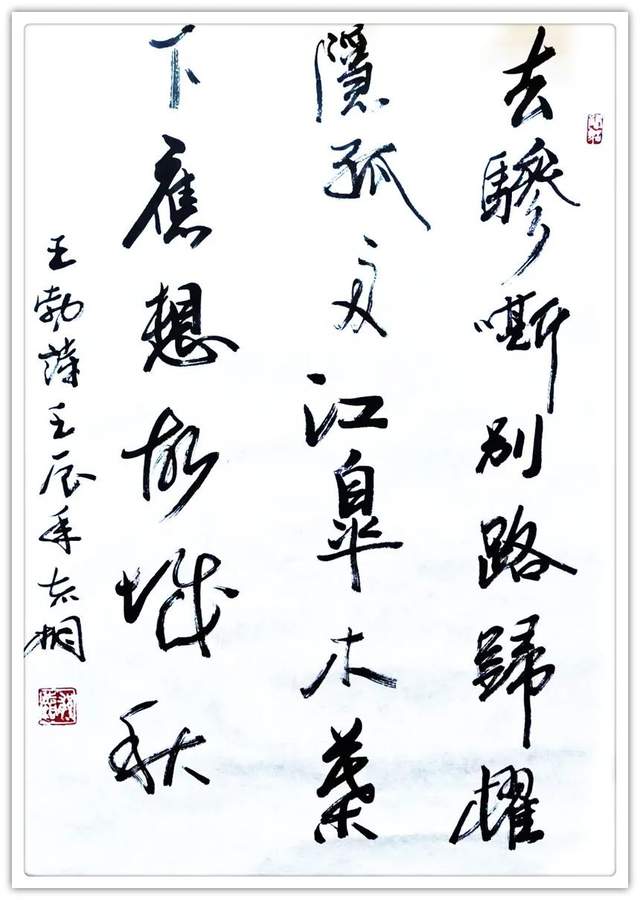 去驂嘶别路歸櫂
隱孤江皋木葉
下應想故城秋
王勃詩壬辰年志桐